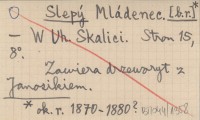 O Slepý Mládenec. [b.r.]*
— W Uh. Skalici. Stron 15,
8°.
Zawiera drzeworyt z
Janosikiem.
* ok. r. 1870-1880?